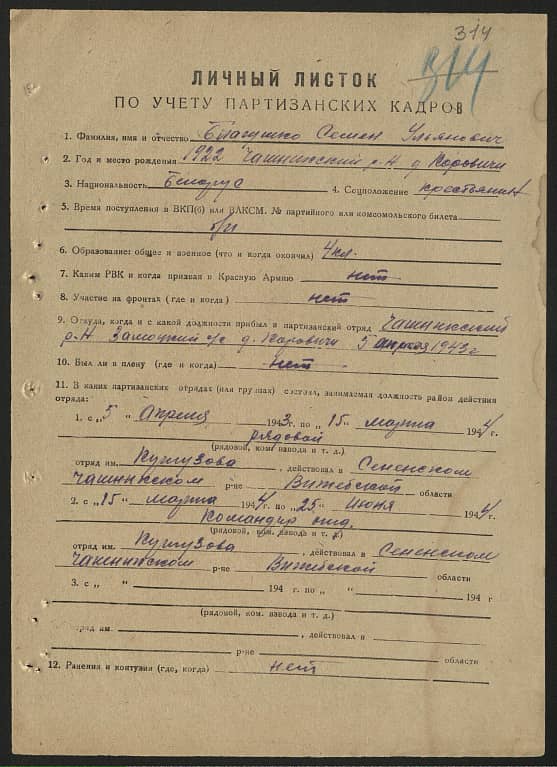 314
314
ЛИЧНЫЙ ЛИСТОК
ПО УЧЕТУ ПАРТИЗАНСКИХ КАДРОВ
1. Фамилия, имя и отчество Семен Ульянович
2. Год и место рождения 1922 Чашникский р-н д Коровичи
3. Национальность Белорус 4. Соцположение крестьянин
5. Время поступления в ВКП(б) или ВЛКСМ. № партийного или комсомольского билета
б/п
6. Образование: общее и военное (что и когда окончил) 4 кл.
7. Каким РВК и когда призван в Красную Армию нет
8. Участие на фронтах (где и когда) нет
9. Откуда, когда и с какой должности прибыл в партизанский отряд Чашникский
р-н Замоцкий с/с д. Коровичи 5 апреля 1943 г
10. Был ли в плену (где и когда) нет
11. В каких партизанских отрядах (или группах) состоял, занимаемая должность район действия
отряда:
1. с „5 “ Апреля 1943 г. по „15“ марта 1944 г.
рядовой
(рядовой, ком. взвода и т. д.)
отряд им. Кутузова, действовал в Сененском
Чашникском р-не Витебской области
2. с „15“ марта 1944 г. по „25“ июня 1944 г.
Командир отд.
(рядовой, ком. взвода и т. д.)
отряд им. Кутузова, действовал в Сененском
Чашникском р-не Витебской области
3. с „ “ 194 г. по „ “ 194 г
(рядовой, ком. взвода и т. д.)
отряд им. , действовал в
р-не области
12. Ранения и контузия (где, когда) нет